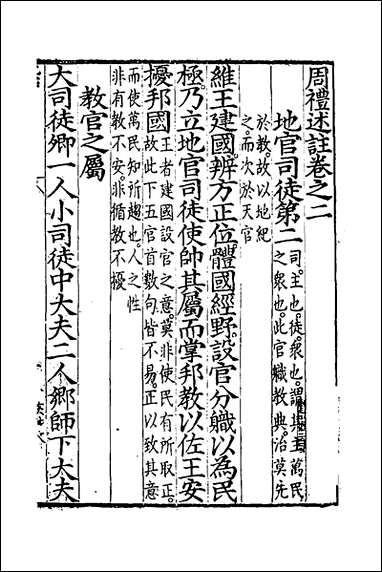 周禮述註卷之二
地官司徒第二 司主也徒衆也謂其主萬民
之衆也此官職教典治莫先
於教故以地紀
之而次於天官
維王建國辨方正位體國經野設官分職以為民
極乃立地官司徒使帥其屬而掌邦教以佐王安
擾邦國 王者建國設官之意莫非使民有所取正
故此下五官首數句皆不易正以致其意
而使萬民知所趨也人之性
非有教不安非循教不擾
教官之屬
大司徒卿一人小司徒中大夫二人鄉師下大夫